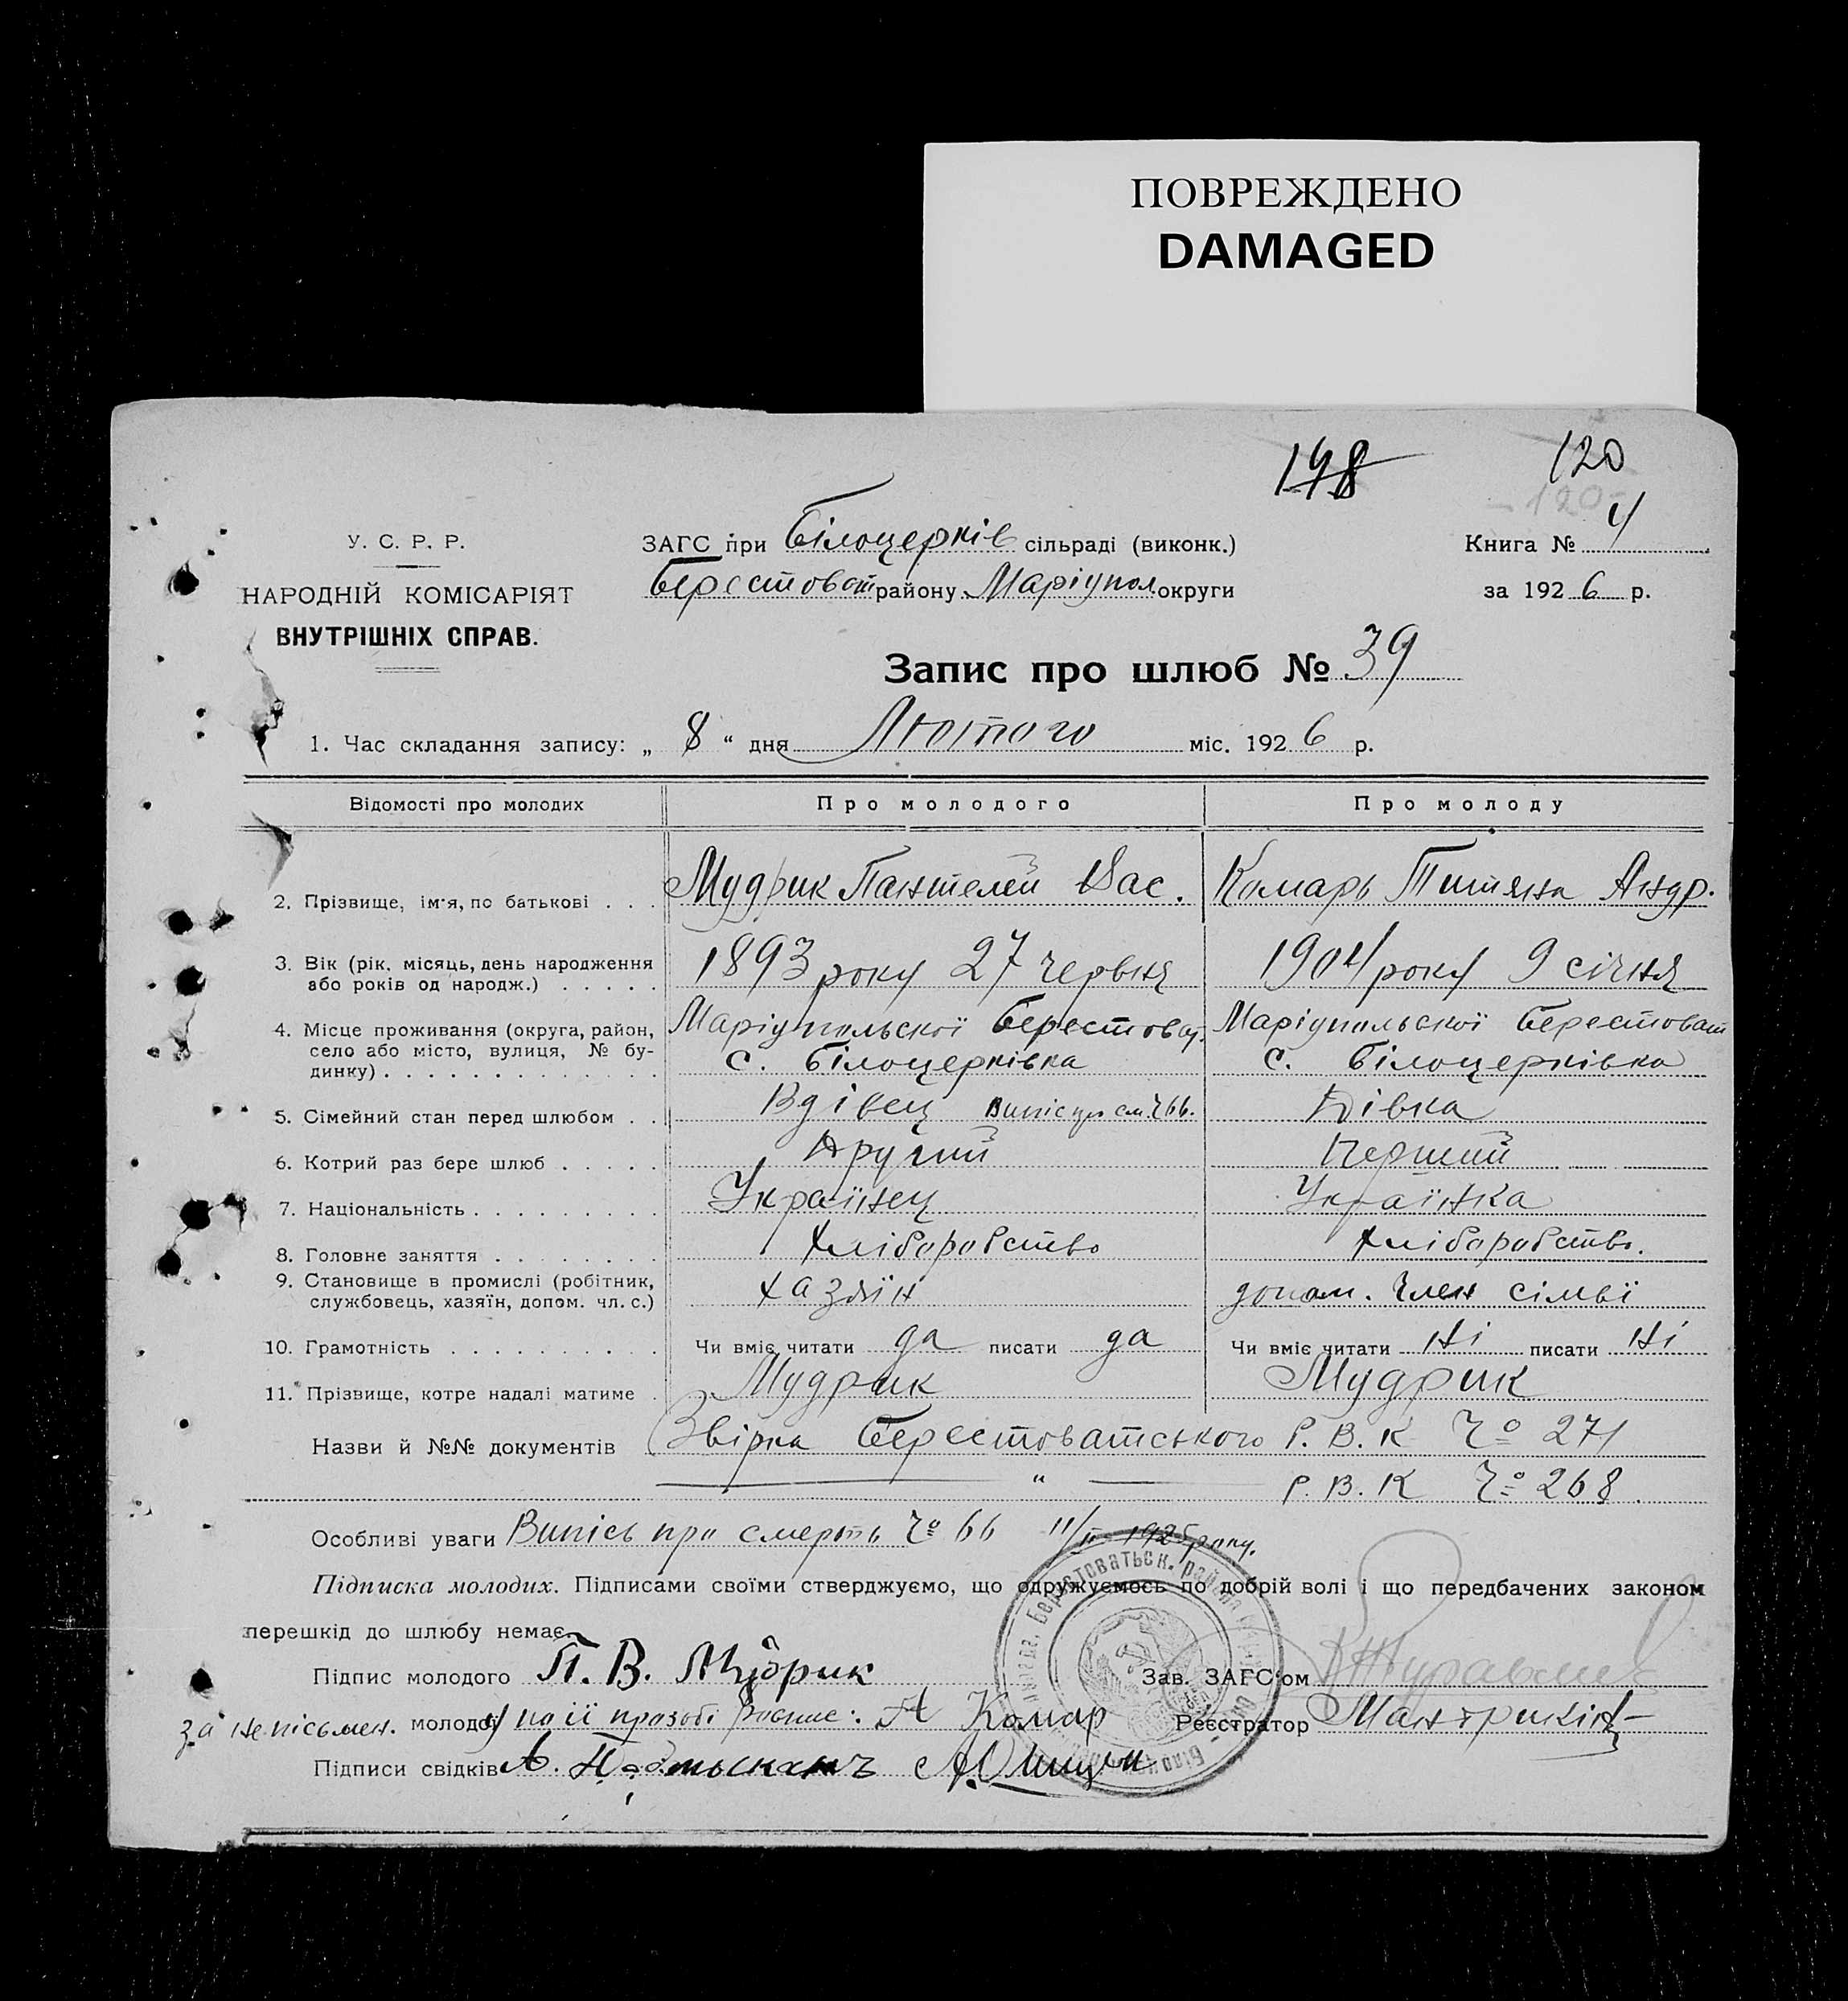 ПОВРЕЖДЕНО
DAMAGED
198 120
120
У. С. Р. Р.
НАРОДНІЙ КОМІСАРІЯТ
ВНУТРІШНІХ СПРАВ.
ЗАГС при Білоцерків сільраді (виконк.)
Берестоват району Маріупол. округи
Книга № 4
за 1926 р.
Запис про шлюб № 39
1. Час складання запису: „ 8 “ дня Лютого міс. 1926 р.
Відомості про молодих Про молодого Про молоду
2. Прізвище, ім'я, по батькові . . . Мудрик Пантелей Вас. Комарь Титяна Андр.
3. Вік (рік, місяць, день народження або років од народж.) . . . . . 1893 року 27 червня 1904 року 9 січня
4. Місце проживання (округа, район, Маріупольскої Берестоват. Маріупольскої Берестоват
село або місто, вулиця, № бу- с. Білоцерківка с. Білоцерківка
динку) . . . . . . . . . . . . .
5. Сімейний стан перед шлюбом . . Вдівец Випіс про см. 66. Дівка
6. Котрий раз бере шлюб . . . . . Другий Перший
7. Національність . . . . . . . . . Українец Українка
8. Головне заняття . . . . . . . . Хліборобство Хліборобство.
9. Становище в промислі (робітник, службовець, хазяїн, допом. чл. с.) Хазяїн допом. член сімьї
10. Грамотність . . . . . . . . . . Чи вміє читати да писати да Чи вміє читати Ні писати Ні
11. Прізвище, котре надалі матиме . Мудрик Мудрик
Назви й №№ документів Звірка Берестоватського Р. В. К № 271
— " — Р. В. К № 268.
Особливі уваги Випісь про смерть № 66 11/II 1925 року.
Підписка молодих. Підписами своїми стверджуємо, що одружуємось по добрій волі і що передбачених законом
перешкід до шлюбу немає.
Підпис молодого П. В. Мудрик Зав. ЗАГС'ом
за неписьмен. молодої по її прозьбі А Комар Реєстратор
Підписи свідків А.